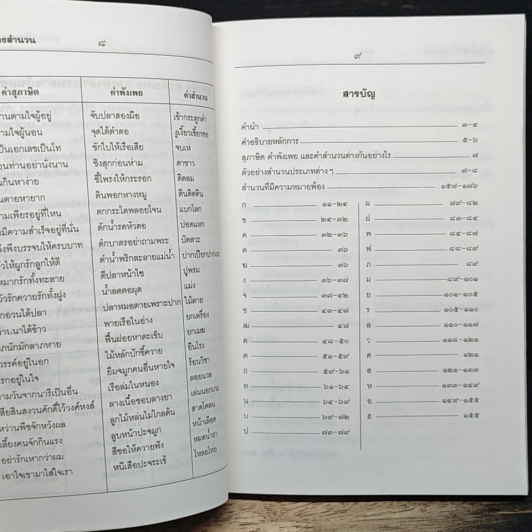 งสำนวน ๘
คำสุภาษิต คำพังเพย คำสำนวน
านตามใจผู้อยู่ จับปลาสองมือ เข้ากระดูกดำ
ามใจผู้นอน จุดใต้ตำตอ งูเงี้ยวเขี้ยวขอ
เป็นเอกเลขเป็นโท ชักใบให้เรือเสีย จบเห่
นท่านอย่านั่งนาน ชิงสุกก่อนห่าม ตาขาว
กินหาง่าย ชี้โพรงให้กระรอก ติดลม
ตายหายาก ตีนพอกหางหมู ตีนติดดิน
ามเพียรอยู่ที่ไหน ตกกระไดพลอยโจน แบกโลก
มีความสำเร็จอยู่ที่นั่น ตักน้ำรดหัวตอ ปอดแหก
งพึงบรรจบให้ครบบาท ตักบาตรอย่าถามพระ ปัดสวะ
วให้ผูกรักลูกให้ตี ตำน้ำพริกละลายแม่น้ำ ปากเปียกปากแฉะ
หมากรักทั้งทะลาย ตีปลาหน้าไซ ปูพรม
วัวรักควายรักทั้งฝูง น้ำลดตอผุด แม่ง
กอวนได้ปลา ปลาหมอตายเพราะปาก ไม้ตาย
านาได้ข้าว พายเรือในอ่าง ยกเครื่อง
ภนักมักลาภหาย ฟื้นฝอยหาตะเข็บ ยกเมฆ
วรรค์อยู่ในอก ไม้หลักปักขี้ควาย ยืนโรง
รกอยู่ในใจ ยืมจมูกคนอื่นหายใจ ร้อนวิชา
ามวันจานารีเป็นอื่น เรือล่มในหนอง ลอยนวล
สียสินสงวนศักดิ์ไว้วงศ์หงส์ ลางเนื้อชอบลางยา เล่นนอกเกม
หว่านพืชจักหวังผล ลูกไม้หล่นไม่ไกลต้น สาดโคลน
เลี้ยงคนจักกินแรง ลูบหน้าปะจมูก หน้าเลือด
อย่ารักเหากว่าผม สีซอให้ควายฟัง หมดน้ำยา
เอาใจเขามาใส่ใจเรา หนีเสือปะจระเข้ โหลยโท่ย
๙
สารบัญ
คำนำ ๓-๔
คำอธิบายหลักการ ๕-๖
สุภาษิต คำพังเพย และคำสำนวนต่างกันอย่างไร ๗
ตัวอย่างสำนวนประเภทต่าง ๆ ๗-๘
สำนวนที่มีความหมายพ้อง ๑๕๗-๑๗๖
ก ๑๑-๒๔ ผ ๗๙-๘๒
ข ๒๔-๓๒ ฝ ๘๓-๘๔
ค ๓๒-๓๖ พ ๘๔-๘๘
ฅ ๓๖ ฟ ๘๘-๘๙
ฆ ๓๖ ภ ๘๙
ง ๓๖-๓๗ ม ๘๙-๑๐๑
จ ๓๗-๔๒ ย ๑๐๑-๑๐๕
ช ๔๓-๔๗ ร ๑๐๕-๑๑๐
ฌ ๔๗ ล ๑๑๐-๑๑๗
ด ๔๘-๕๐ ว ๑๑๘-๑๒๑
ต ๕๑-๕๙ ศ ๑๒๑
ถ ๕๙-๖๑ ส ๑๒๑-๑๓๓
ท ๖๑-๖๔ ห ๑๓๓-๑๔๙
น ๖๔-๖๙ อ ๑๔๙-๑๕๕
บ ๖๙-๗๒ ฮ ๑๕๕
ป ๗๓-๗๙